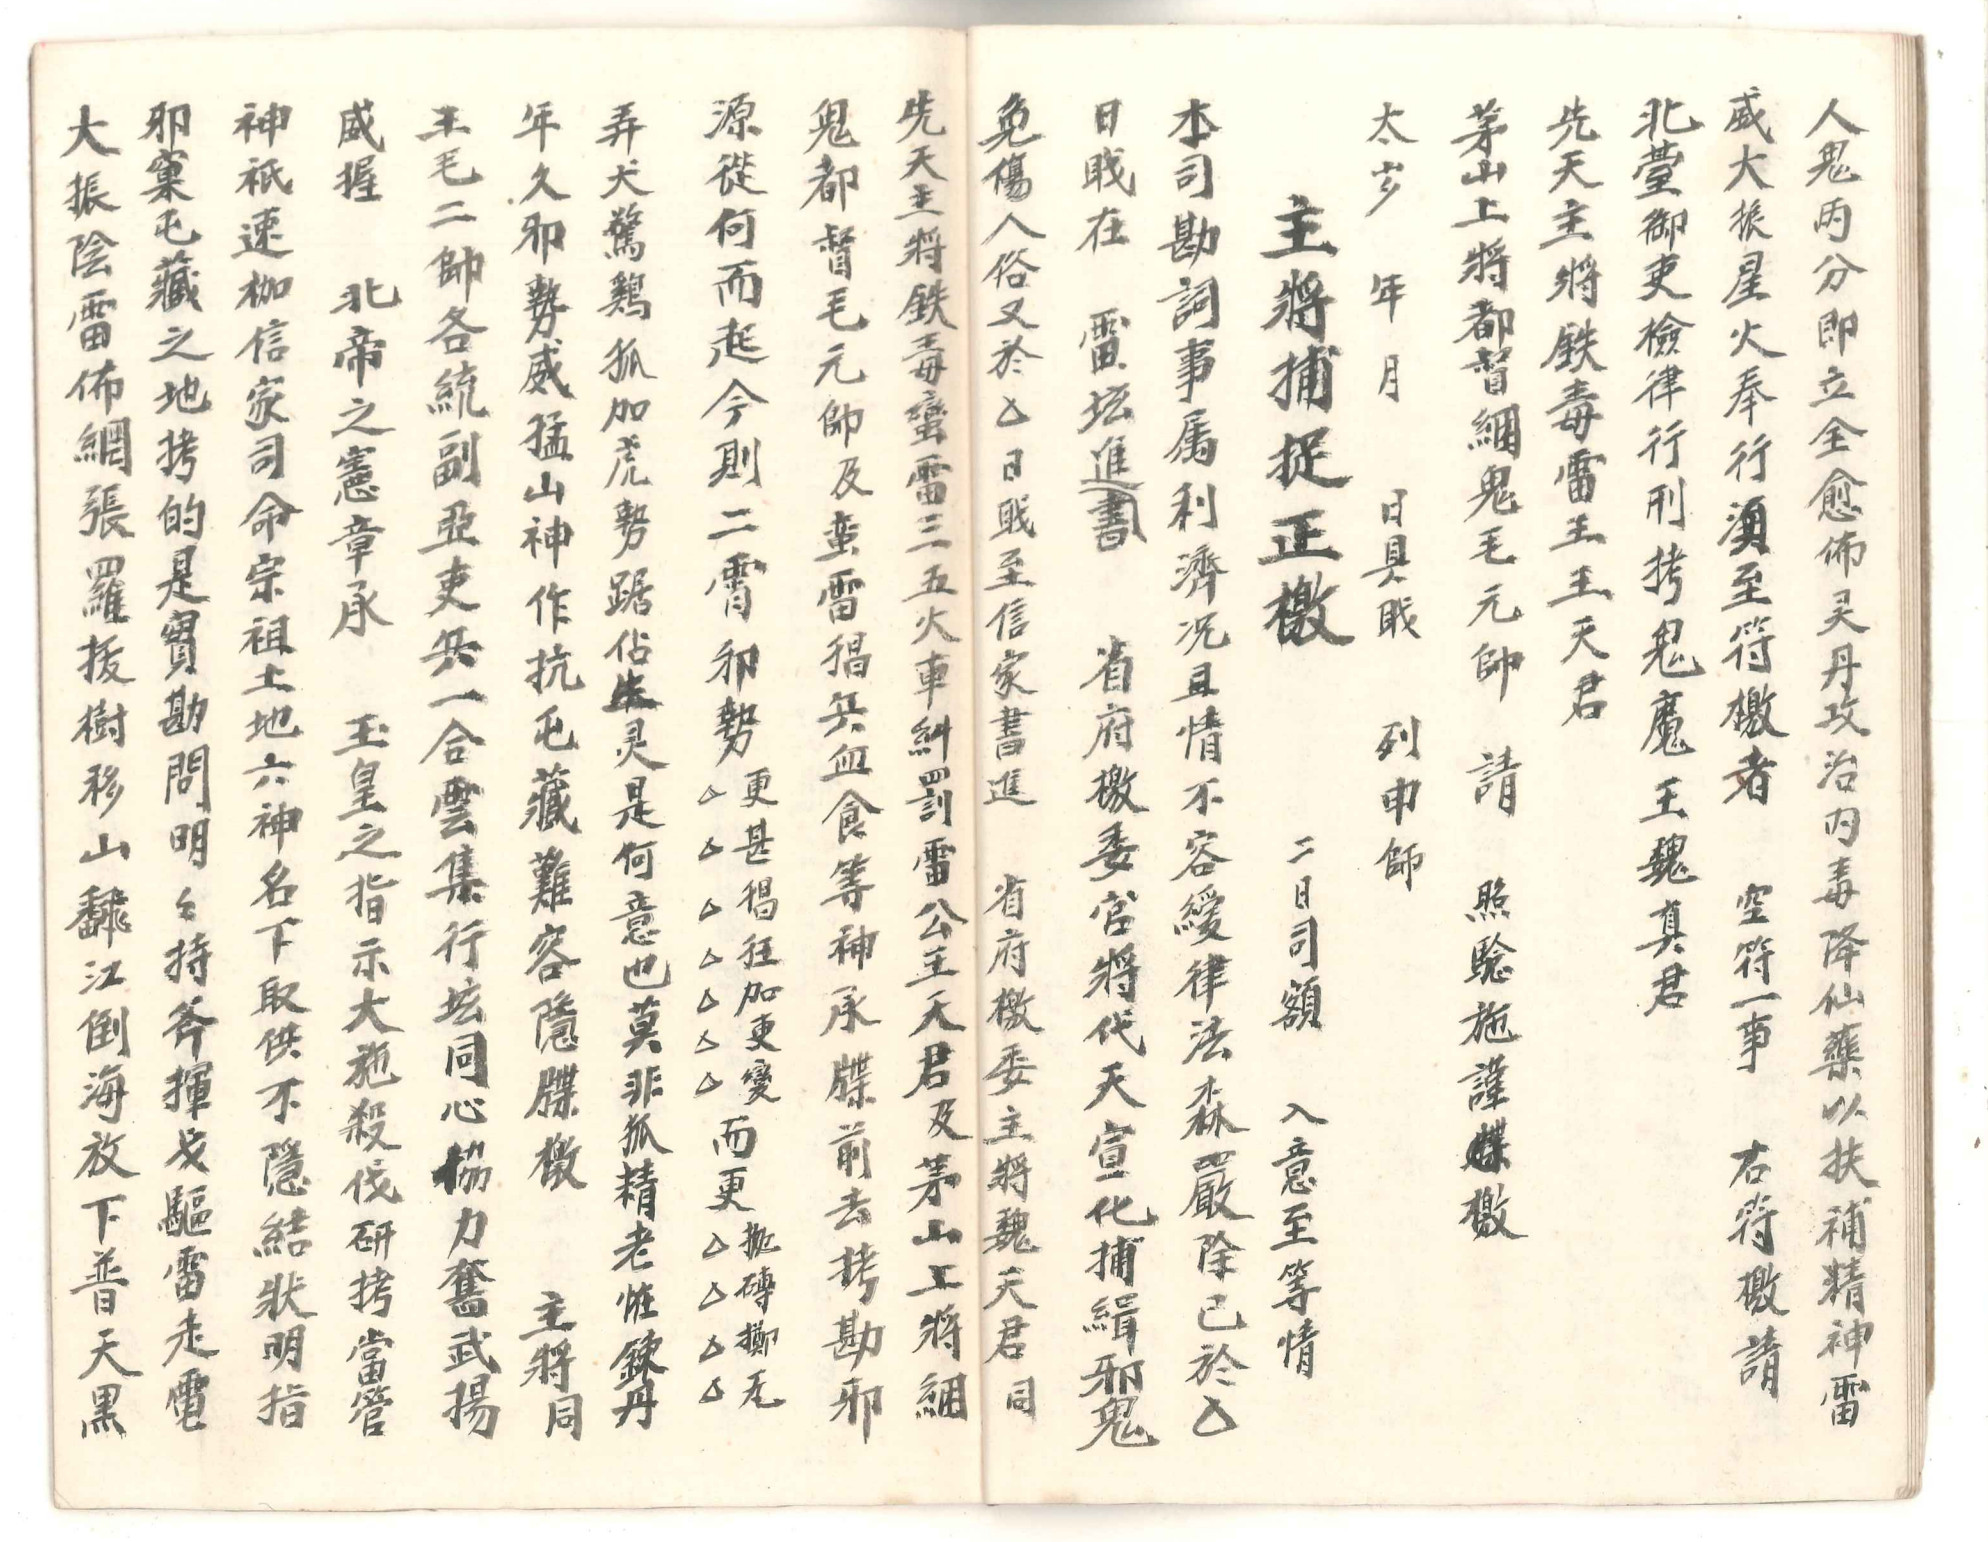 人鬼丙分即立全愈佈灵丹攻治内毒降仙藥以扶補精神雷
威大振星火奉行須至符檄者 空符一事 右符檄請
北臺御吏檢律行刑拷鬼魔王魏真君
先天主將鉄毒雷王王天君
茅山上將都督綑鬼毛元帥 請 照驗施謹牒檄
太歲 年 月 日具戝 列申師
主將捕捉正檄 二日司額 入意至等情
本司勘詞事属利濟况且情不容緩律法森嚴除已於厶
日戝在 雷坛進書 省府檄委官將代天宣化捕緝邪鬼
免傷人俗又於厶日戝至信家書進 省府檄委主將魏天君同
先天主將鉄毒蛮雷三五火車糾罰雷公王天君及茅山上將綑
鬼都督毛元帥及蛮雷猖兵血食等神承牒前去拷勘邪
源從何而起今則二宵邪勢更甚猖狂加更變△△△△△△而更抛磚擲瓦△△△△
弄犬驚鷄狐加虎勢踞佔生灵是何意也莫非狐精老怪鍊丹
年久邪勢威猛山神作抗屯藏難容隱牒檄 主將同
王毛二帥各統副亞吏兵一合雲集行坛同心協力奮武揚
威握 北帝之憲章承 玉皇之指示大施殺伐研拷當管
神祇速枷信家司命宗祖土地六神名下取供不隱結狀明指
邪窠屯藏之地拷的是實勘問明々持斧揮戈驅雷走電
大振陰雷佈網張羅拔樹移山飜江倒海放下普天黑